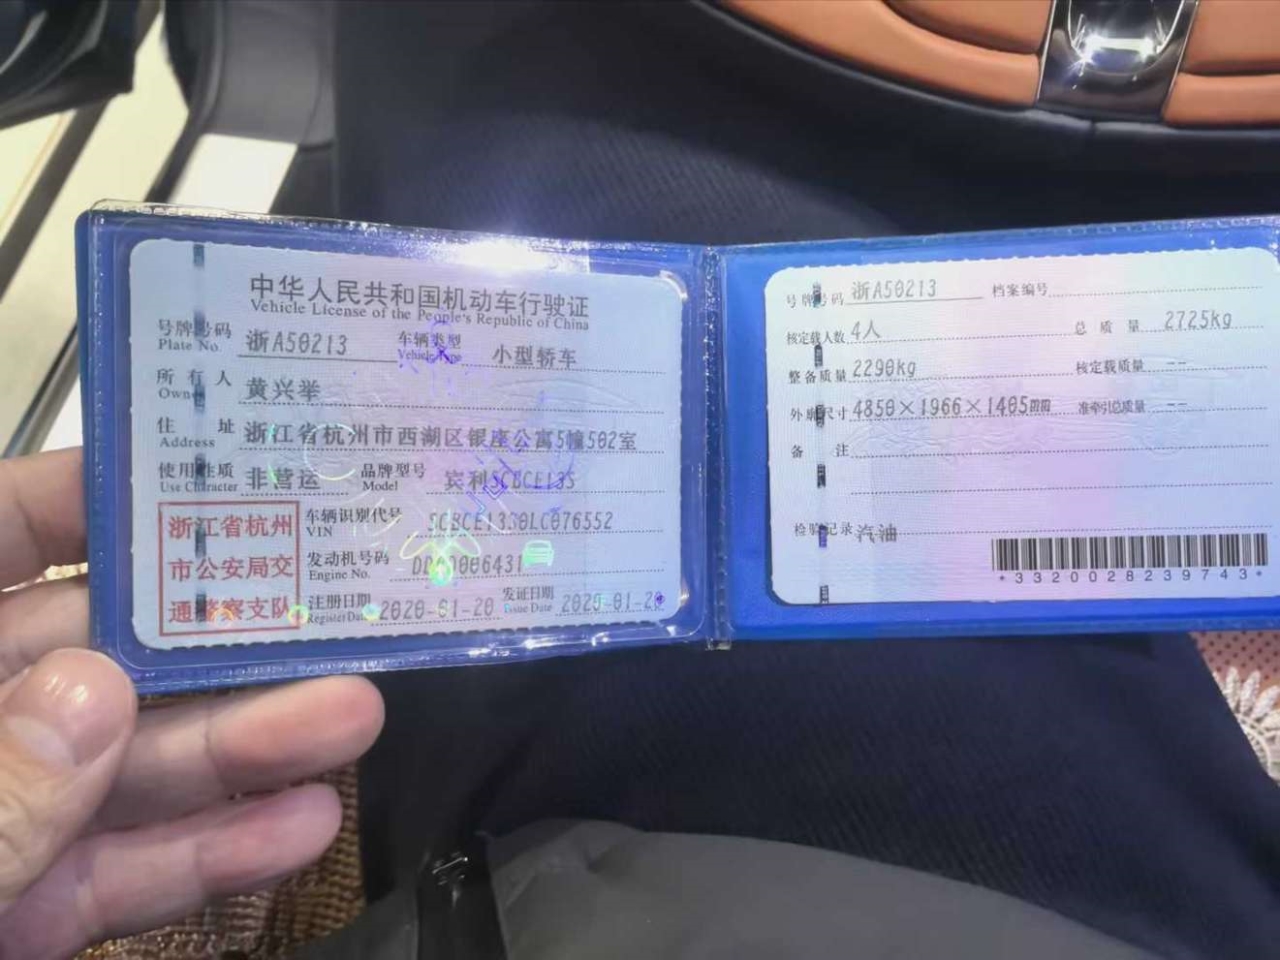 中华人民共和国机动车行驶证
Vehicle License of the People's Republic of China
号牌号码 浙A50213 车辆类型 小型轿车
Plate No. Vehicle Type
所有人 黄兴举
Owner
住址 浙江省杭州市西湖区银座公寓5幢502室
Address
使用性质 非营运 品牌型号 宾利SCBCE135
Use Character Model
浙江省杭州
市公安局交
通警察支队
车辆识别代号 SCBCE13S0LC076552
VIN
发动机号码
Engine No.
注册日期 2020-01-20 发证日期 2020-01-20
Register Date Issue Date
号牌号码 浙A50213 档案编号
核定载人数 4人 总质量 2725kg
整备质量 2290kg 核定载质量 --
外廓尺寸 4850×1966×1405mm 准牵引总质量 --
备注
检验记录 汽油
*3320028239743*